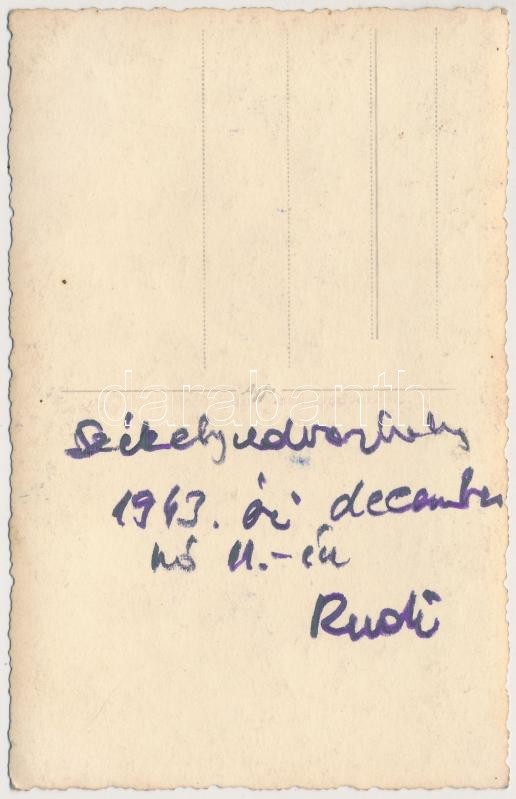 darabanth
Székelyudvarhely
1943. évi december
hó 11.-én
Rudi